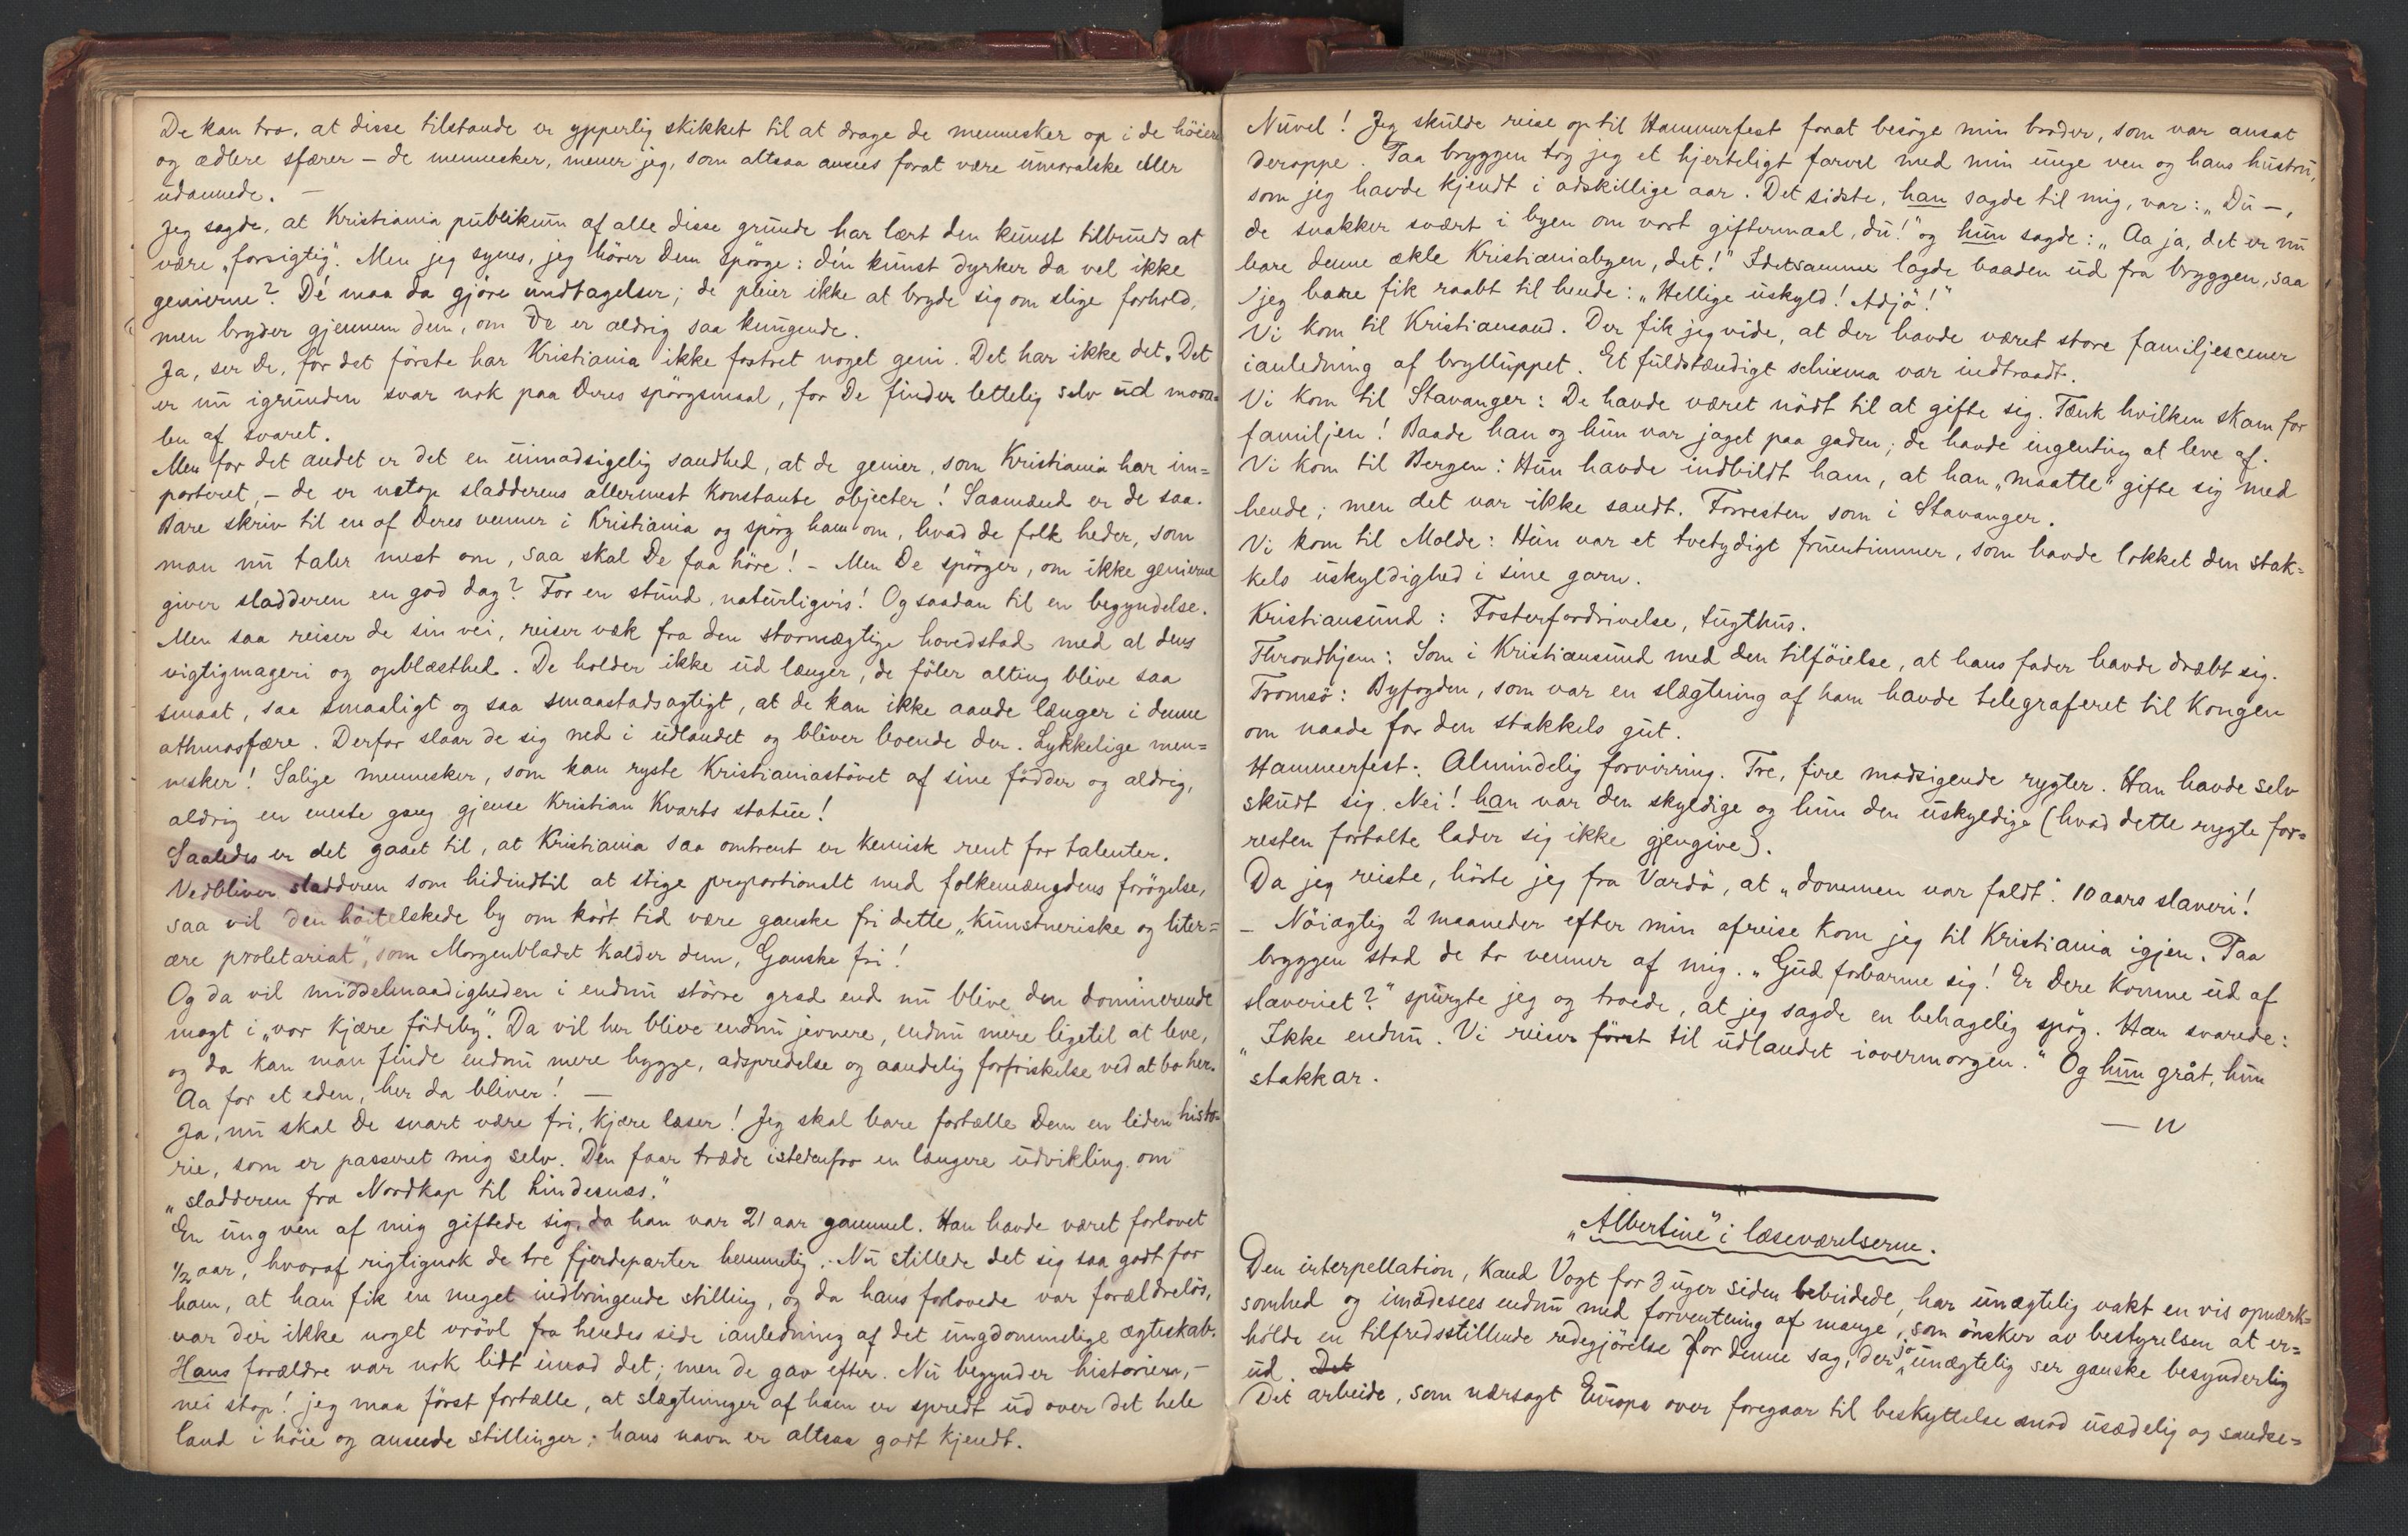 De kan tro, at disse tilstande er ypperlig skikket til at drage de mennesker op i de höiere
og ædlere sfærer – de mennesker, mener jeg, som altsaa ansees forat være umoralske eller
udannede. —
Jeg sagde, at Kristiania publikum af alle disse grunde har lært den kunst tilbunds at
være „forsigtig“. Men jeg synes, jeg hörer Dem spörge: dén kunst dyrker da vel ikke
genierne? Dé maa da gjöre undtagelser; de pleier ikke at bryde sig om slige forhold,
men bryder gjennem dem, om de er aldrig saa kungende.
Ja, ser De, for det förste har Kristiania ikke fostret noget geni. Det har ikke det. Det
er nu igrunden svar nok paa Deres spörgsmaal, for De finder lettelig selv ud mora=
len af svaret.
Men for det andet er det en uimodsigelig sandhed, at de genier, som Kristiania har im=
porteret, – de er netop sladderens allermest konstante objecter! Saamænd er de saa.
Bare skriv til en af Deres venner i Kristiania og spörg ham om, hvad de folk heder, som
man nu taler mest om, saa skal De faa höre! – Men De spörger, om ikke genierne
giver sladderen en god dag? For en stund, naturligvis! Og saadan til en begyndelse.
Men saa reiser de sin vei, reiser væk fra den stormægtige hovedstad med al dens
vigtigmageri og opblæsthed. De holder ikke ud længer, de föler alting blive saa
smaat, saa smaaligt og saa smaastadsagtigt, at de kan ikke aande længer i denne
athmosfære. Derfor slaar de sig ned i udlandet og bliver boende der. Lykkelige men=
nesker! Salige mennesker, som kan ryste Kristianiastövet af sine födder og aldrig,
aldrig en eneste gang gjense Kristian Kvarts statue!
Saaledes er det gaaet til, at Kristiania saa omtrent er kemisk rent for talenter.
Vedbliver sladderen som hidindtil at stige proportionalt med folkemængdens forögelse,
saa vil den höitelskede by om kort tid være ganske fri dette „kunstneriske og liter=
ære proletariat“, som Morgenbladet kalder dem, Ganske fri!
Og da vil middelmaadigheden i endnu större grad end nu blive den dominerende
magt i „vor kjære födeby“. Da vil her blive endnu jevnere, endnu mere ligetil at leve,
og da kan man finde endnu mere hygge, adspredelse og aandelig forfriskelse ved at bo her.
Aa for et eden, her da bliver! —
Ja, nu skal De snart være fri, kjære læser! Jeg skal bare fortælle Dem en liden histo=
rie, som er passeret mig selv. Den faar træde istedenfor en længere udvikling om
„sladderen fra Nordkap til Lindesnæs.“
En ung ven af mig giftede sig, da han var 21 aar gammel. Han havde været forlovet
1/2 aar, hvoraf rigtignok de tre fjerdeparter hemmelig. Nu stillede det sig saa godt for
ham, at han fik en meget indbringende stilling, og da hans forlovede var forældrelös,
var der ikke noget vrövl fra hendes side ianledning af det ungdommelige ægteskab.
Hans forældre var nok lidt imod det; men de gav efter. Nu begynder historien, –
nei stop! jeg maa först fortælle, at slægtninger af ham er spredt ud over det hele
land i höie og ansede stillinger; hans navn er altsaa godt kjendt.
Nuvel! Jeg skulde reise op til Hammerfest forat besöge min broder, som var ansat
deroppe. Paa bryggen tog jeg et hjerteligt farvel med min unge ven og hans hustru,
som jeg havde kjendt i adskillige aar. Det sidste, han sagde til mig, var: „Du –,
de snakker svært i byen om vort giftermaal, du!“ og hun sagde: „Aa ja, det er nu
bare denne ækle Kristianiabyen, det!“ Idetsamme lagde baaden ud fra bryggen, saa
jeg bare fik raabt til hende: „Hellige uskyld! Adjö!“
Vi kom til Kristiansand. Der fik jeg vide, at der havde været store familjescener
ianledning af brylluppet. Et fuldstændigt schisma var indtraadt.
Vi kom til Stavanger: De havde været nödt til at gifte sig. Tænk hvilken skam for
familjen! Baade han og hun var jaget paa gaden; de havde ingenting at leve af.
Vi kom til Bergen: Hun havde indbildt ham, at han „maatte“ gifte sig med
hende; men det var ikke sandt. Forresten som i Stavanger.
Vi kom til Molde: Hun var et tvetydigt fruentimmer, som havde lokket den stak=
kels uskyldighed i sine garn.
Kristiansund: Fosterfordrivelse, tugthus.
Throndhjem: Som i Kristiansund med den tilföielse, at hans fader havde dræbt sig.
Tromsö: Byfogden, som var en slægtning af ham havde telegraferet til Kongen
om naade for den stakkels gut.
Hammerfest: Almindelig forvirring. Tre, fire modsigende rygter. Han havde selv
skudt sig. Nei! han var den skyldige og hun den uskyldige (hvad dette rygte for=
resten fortalte lader sig ikke gjengive).
Da jeg reiste, hörte jeg fra Vardö, at „dommen var faldt“. 10 aars slaveri!
– Nöiagtig 2 maaneder efter min afreise kom jeg til Kristiania igjen. Paa
bryggen stod de to venner af mig. „Gud forbarme sig! Er Dere komne ud af
slaveriet?“ spurgte jeg og troede, at jeg sagde en behagelig spög. Han svarede:
„Ikke endnu. Vi reiser först til udlandet iovermorgen.“ Og hun gråt, hun
stakkar.
— n
„Albertine“ i læseværelserne.
Den interpellation, kand Vogt for 3 uger siden bebudede, har unægtelig vakt en vis opmærk=
somhed og imödesees endnu med forventning af mange, som önsker av bestyrelsen at er=
holde en tilfredsstillende redegjörelse for denne sag, der jo unægtelig ser ganske besynderlig
ud. Det
Det arbeide, som nærsagt Europa over foregaar til beskyttelse mod usædelig og sandse=